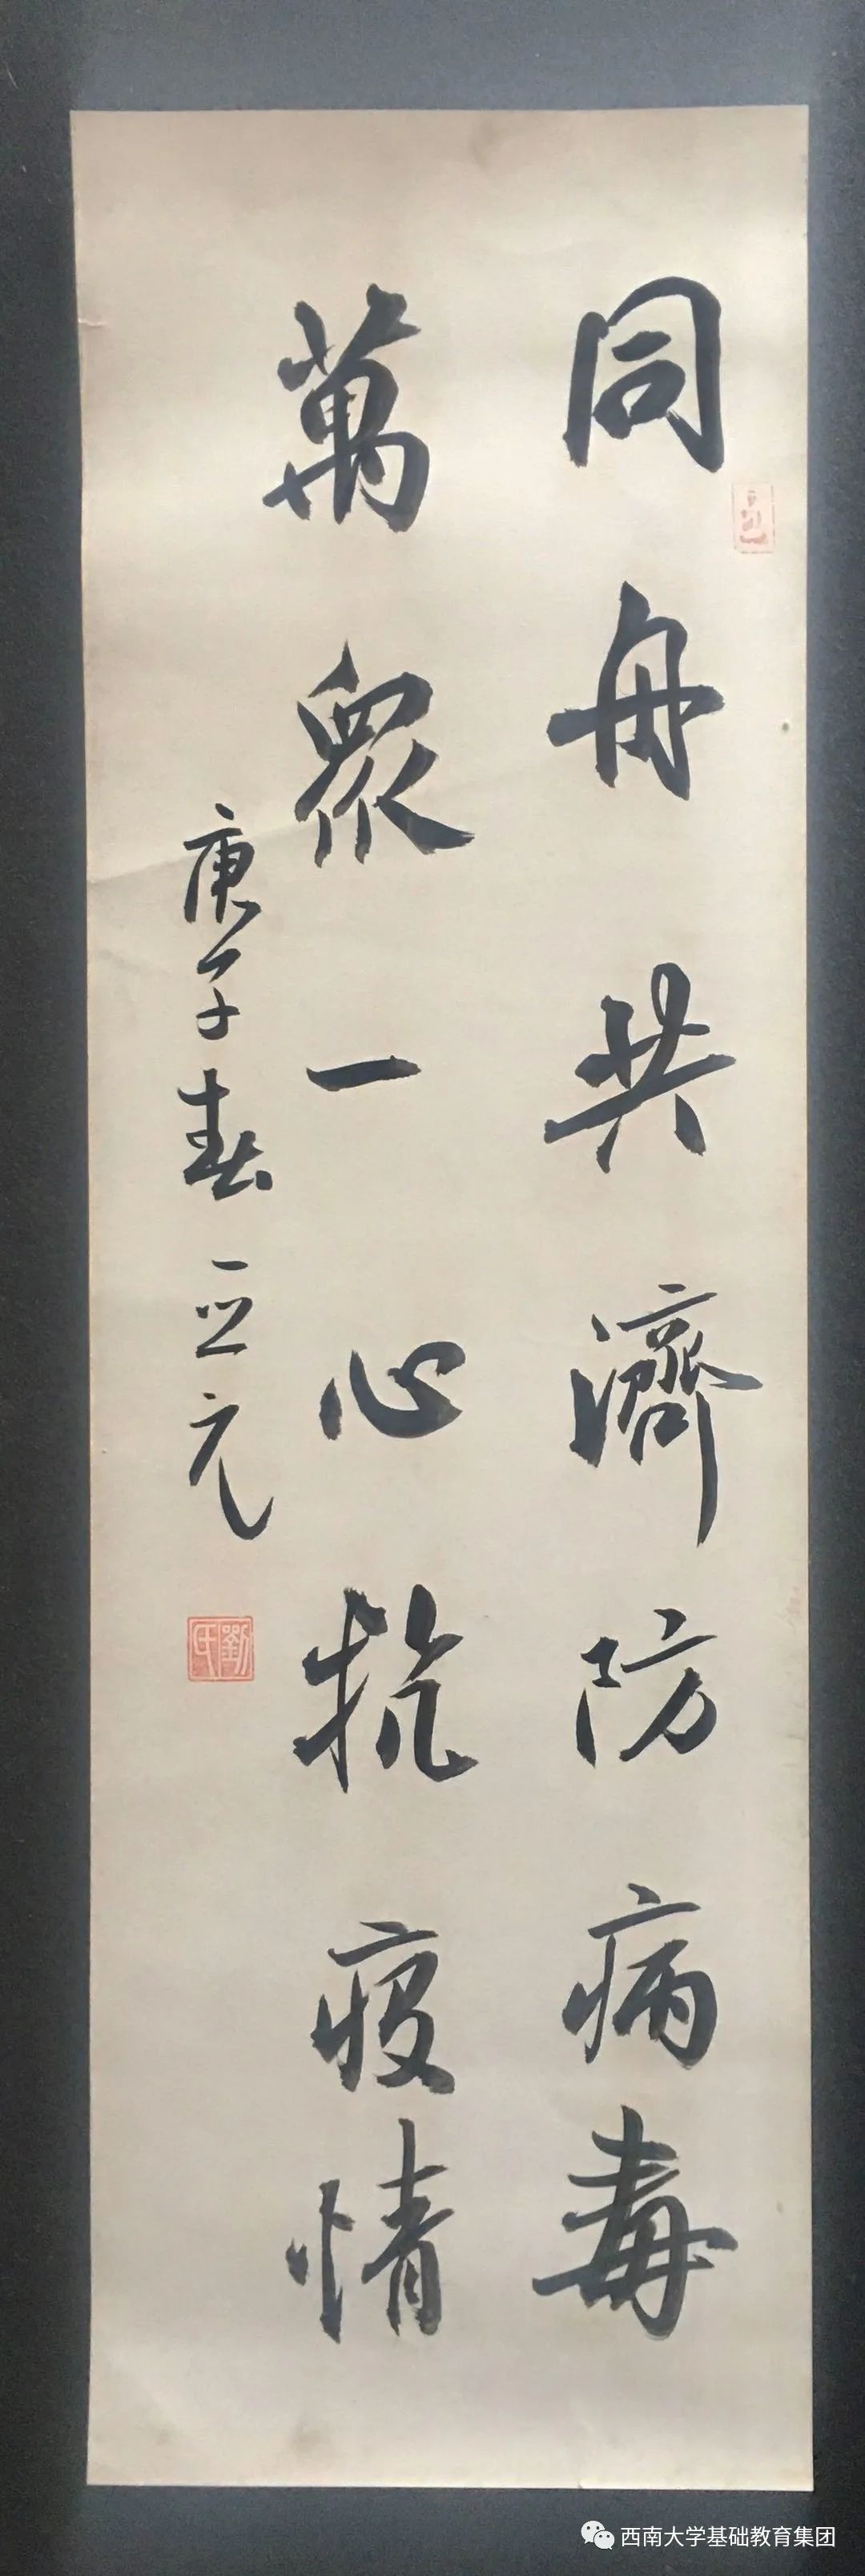 同舟共濟防病毒
萬眾一心抗疫情
庚子春 立元
劉氏
西南大学基础教育集团